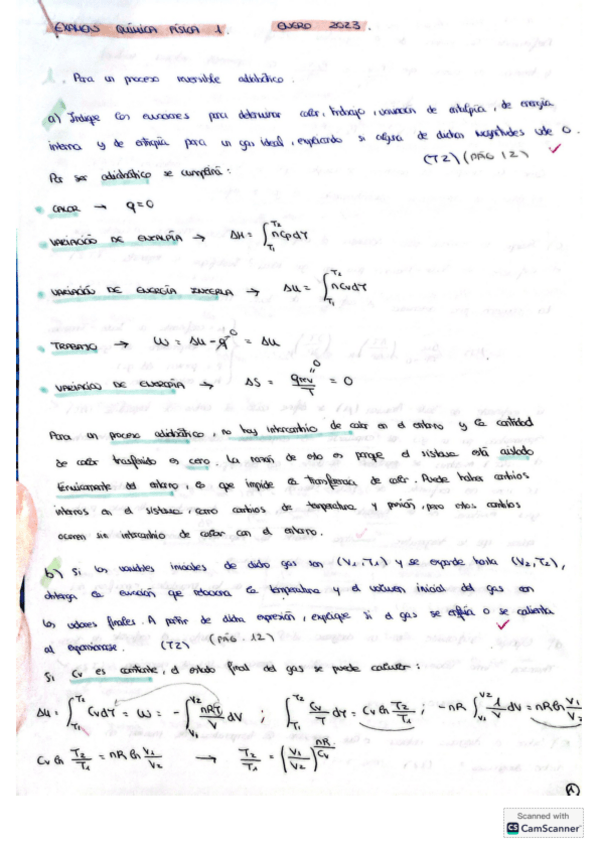 EXAMEN QUÍMICA FÍSICA 1. ENERO 2023.
1. Para un proceso reversible adiabático.
a) Indique las ecuaciones para determinar calor, trabajo, variación de entalpía, de energía
interna y de entropía para un gas ideal, explicando si alguna de dichas magnitudes vale 0.
(T2) (PÁG 12) ✓
Por ser adiabático se cumplirá:
• CALOR → q=0
• VARIACIÓN DE ENTALPÍA → ΔH = ∫_{T1}^{T2} nCpdT
• VARIACIÓN DE ENERGÍA INTERNA → ΔU = ∫_{T1}^{T2} nCvdT
• TRABAJO → W = ΔU - q^0 = ΔU
• VARIACIÓN DE ENTROPÍA → ΔS = qrev/T = 0
0
"
Para un proceso adiabático, no hay intercambio de calor en el entorno y la cantidad
de calor trasferido es cero. La razón de esto es porque el sistema está aislado
térmicamente del entorno, lo que impide la transferencia de calor. Puede haber cambios
internos en el sistema, como cambios de temperatura y presión, pero estos cambios
ocurren sin intercambio de calor con el entorno. ✓
b) Si las variables iniciales de dicho gas son (V1,T1) y se expande hasta (V2,T2),
obtenga la ecuación que relaciona la temperatura y el volumen inicial del gas con
los valores finales. A partir de dicha expresión, explique si el gas se enfría o se calienta
al expansionarse. (T2) (PÁG. 12) ✓
Si Cv es constante, el estado final del gas se puede calcular:
ΔU = ∫_{T1}^{T2} CvdT = W = - ∫_{V1}^{V2} nRT/V dV ; ∫_{T1}^{T2} Cv/T dT = Cv ln T2/T1 ; -nR ∫_{V1}^{V2} 1/V dV = nR ln V1/V2
Cv ln T2/T1 = nR ln V1/V2 → T2/T1 = (V1/V2)^{nR/Cv}
1
Scanned with
CS CamScanner